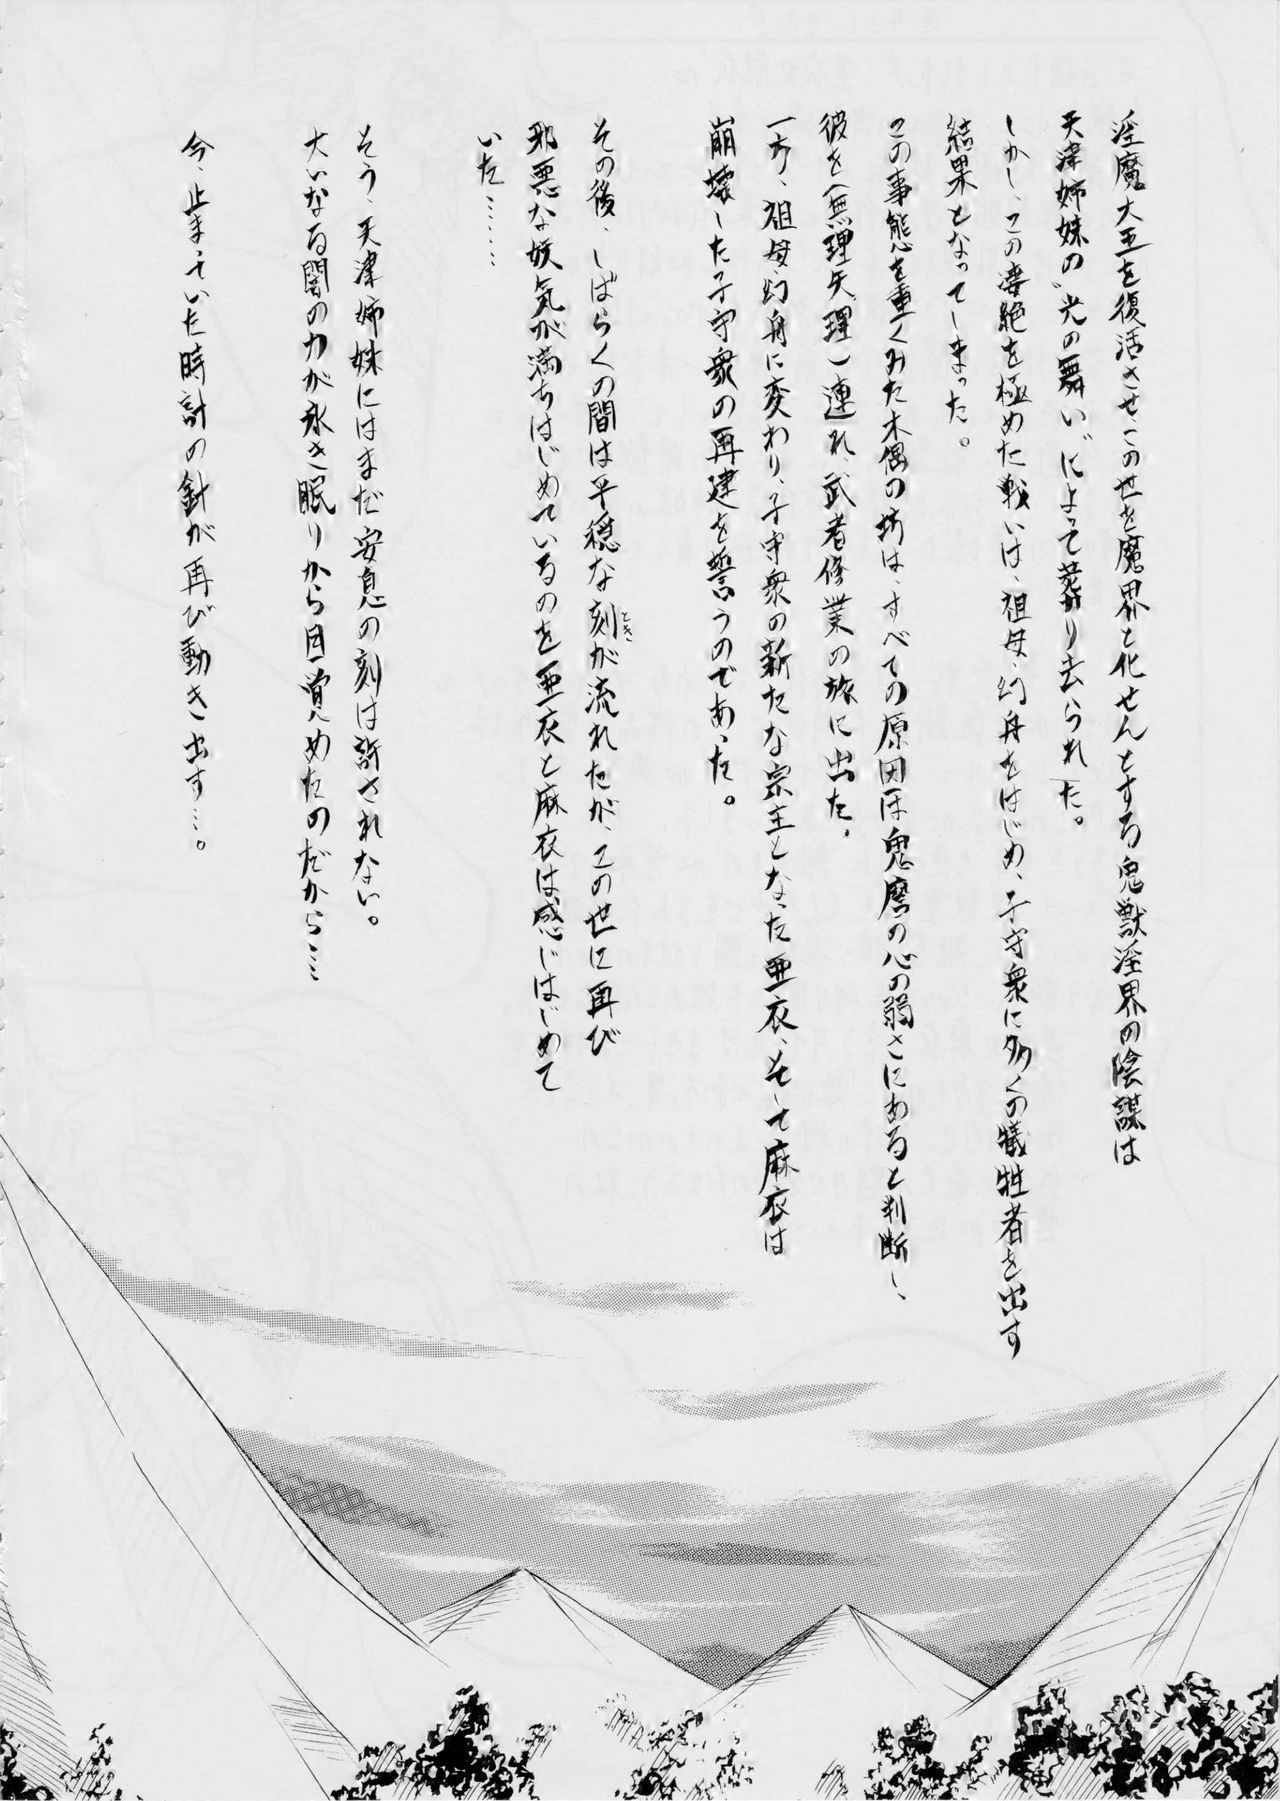 淫魔大王を復活させ、この世を魔界と化せんとする鬼獣淫界の陰謀は
天津姉妹の〝光の舞い〟によって葬り去られた。
しかし、この凄絶を極めた戦いは、祖母・幻舟をはじめ、子守衆に多くの犠牲者を出す
結果となってしまった。
この事態を重くみた木偶の坊は、すべての原因は鬼麿の心の弱さにあると判断し、
彼を（無理矢理）連れ、武者修業の旅に出た。
一方、祖母・幻舟に変わり、子守衆の新たな宗主となった亜衣、そして麻衣は
崩壊した子守衆の再建を誓うのであった。
その後、しばらくの間は平穏な刻が流れたが、この世に再び
とき
邪悪な妖気が満ちはじめているのを亜衣と麻衣は感じはじめて
いた……
そう、天津姉妹にはまだ安息の刻は許されない。
大いなる闇の力が永き眠りから目覚めたのだから…
今、止まっていた時計の針が再び動き出す…。